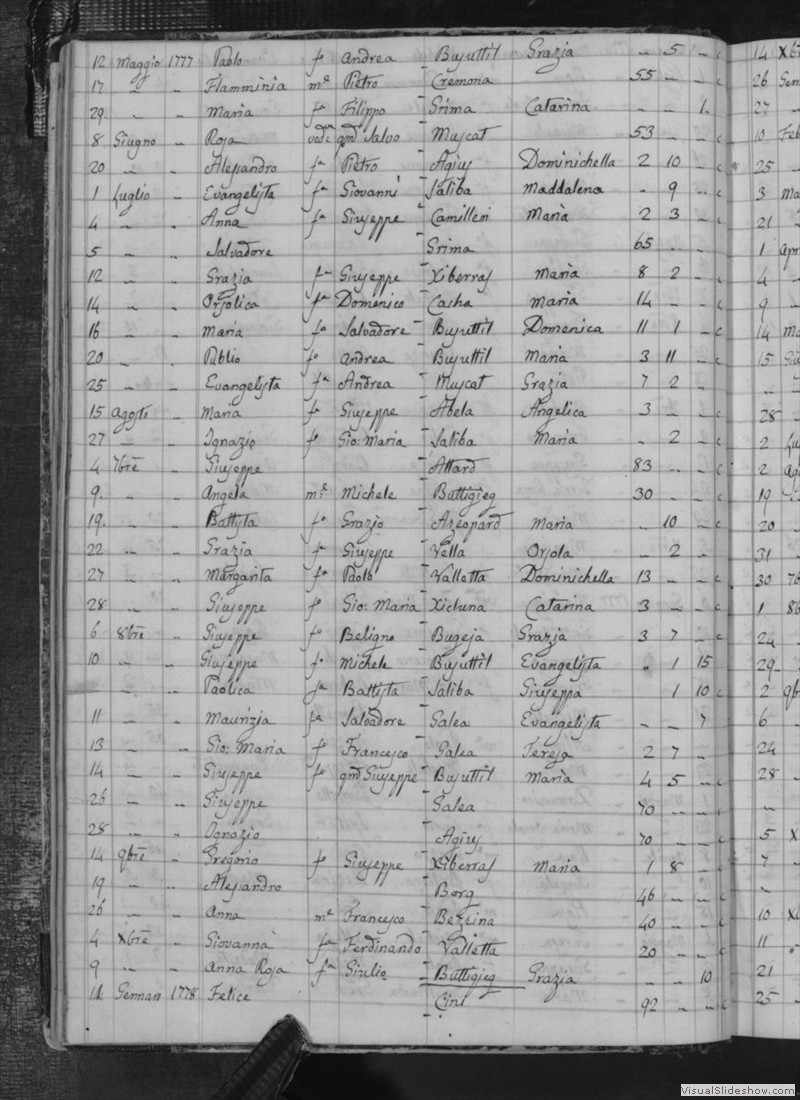 12 Maggio 1777 Paolo fo Andrea Bujuttil Grazia – 5 – c
17 „ „ Flamminia me Pietro Cremona 55 – – c
29. „ „ Maria fa Filippo Grima Catarina – – 1.
8 Giugno „ Roja ved: qm̃ Salvo Mujcat 53 – – c
20 „ „ Alejandro fo Pietro Agiuj Dominichella 2 10 – c
1 Luglio „ Evangelijta fa Giovanni Saliba Maddalena – 9 – c
4 „ „ Anna fa Giujeppe Camilleri Maria 2 3 – c
5 „ „ Salvadore Grima 65 – –
12 „ „ Grazia fa Giujeppe Xiberraj Maria 8 2 – c
14 „ „ Orjolica fa Domenico Casha Maria 14 – – c
16 „ „ Maria fa Salvadore Bujuttil Domenica 11 1 – c
20 „ „ Publio fo Andrea Bujuttil Maria 3 11 – c
25 „ „ Evangelijta fa Andrea Mujcat Grazia 7 2 –
15 Aggto „ Maria fa Giujeppe Abela Angelica 3 – – c
27 „ „ Ignazio fo Gio: Maria Saliba Maria – 2 – c
4 7bre „ Giujeppe Attard 83 – – c
9. „ „ Angela me Michele Buttigieg 30 – – c
19. „ „ Battijta fo Grazio Azeopard Maria – 10 – c
22 „ „ Grazia fa Giujeppe Vella Orjola – 2 – c
27 „ „ Margarita fa Paolo Valletta Dominichella 13 – – c
28 „ „ Giujeppe fo Gio: Maria Xicluna Catarina 3 – – c
6 8bre „ Giujeppe fo Beligno Bugeja Grazia 3 7 – c
10 „ „ Giujeppe fo Michele Bujuttil Evangelijta – 1 15
– „ Paolica fa Battijta Saliba Giujeppa 1 10 c
11 „ „ Maurizia fa Salvadore Galea Evangelijta – – 7
13 „ „ Gio: Maria fo Francesco Galea Tereja 2 7 –
14 „ „ Giujeppe fo qm̃ Giujeppe Bujuttil Maria 4 5 – c
26 „ „ Giujeppe Galea 70 – – c
28 „ „ Ignazio Agiuj 70 – – c
14 9bre „ Gregorio fo Giujeppe Xiberraj Maria 1 8 – c
19 „ „ Alejandro Borg 46 – – c
26 „ „ Anna me Francesco Bezzina 40 – – c
4 Xbre „ Giovanna fa Ferdinando Valletta 20 – – c
9 „ „ Anna Roja fa Giulio Buttigieg Grazia – – 10
11. Gennaro 1778 Felice Cini 92 – – c
14 Xbr
26 Gen
27 –
10 Feb
25 –
3 Ma
21 –
1 Apr
4 –
9 –
14 Ma
15 Giu
28 –
2 Lu
2 Ag
19 –
20 –
31 –
30 7b
1 8b
24 –
29 –
2 9b
6 –
24 –
28 –
5 X
7 –
10 X
11 –
21 –
25 –
VisualSlideshow.com